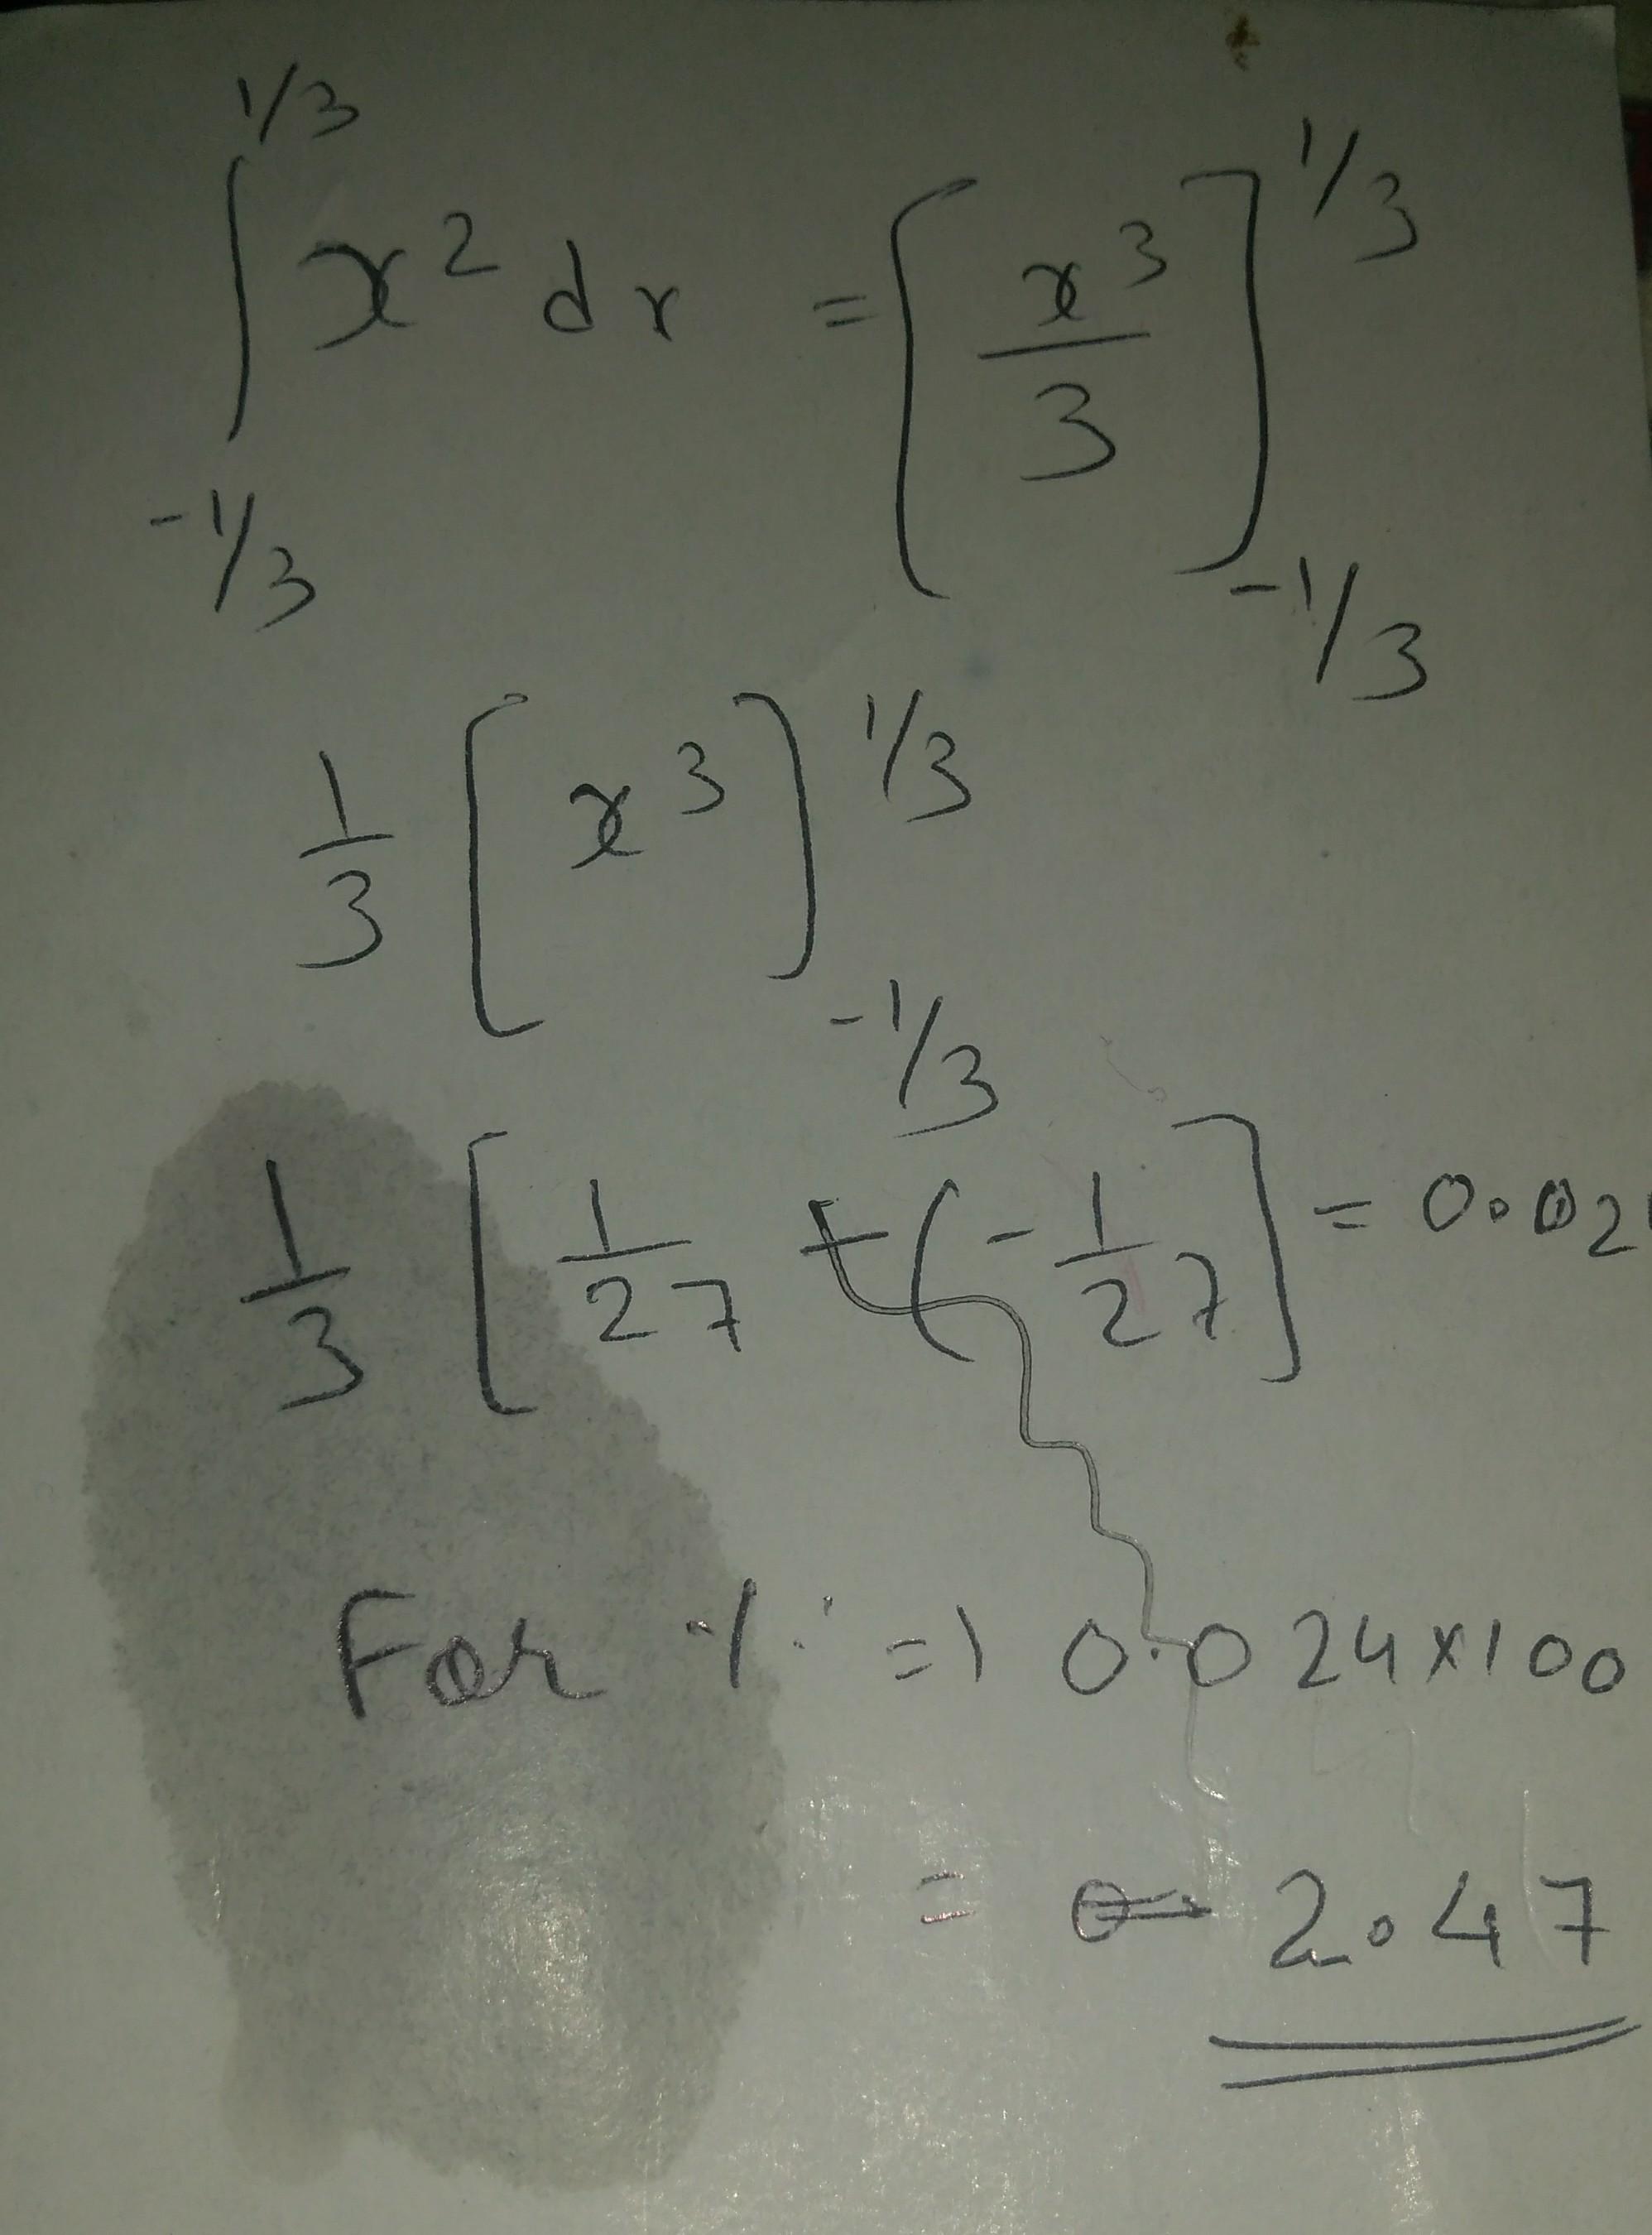 ∫_{-1/3}^{1/3} x² dx = [x³/3]_{-1/3}^{1/3}
1/3 [x³]_{-1/3}^{1/3}
1/3 [1/27 - (-1/27] = 0.02
For % = 0.024×100
= 2.47